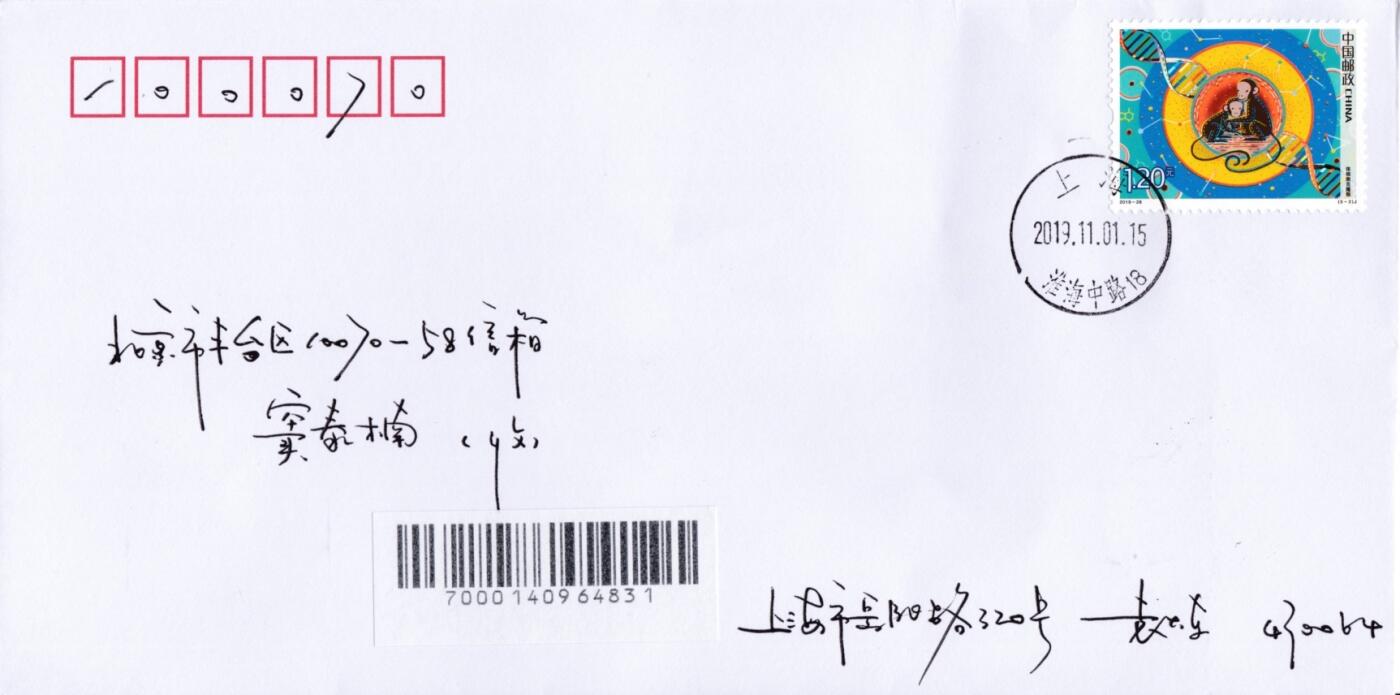 100070
中国邮政 CHINA
1.20元
2019-28
上海
2019.11.01.15
淮海中路18
北京市丰台区100070-58信箱
窦泰楠 (收)
7000140964831
上海市岳阳路320号